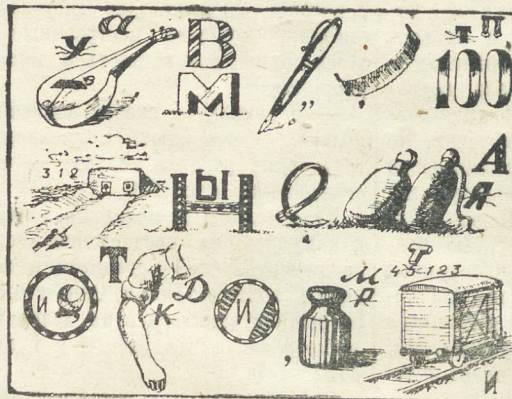 у а В ,, т п
М 100
312 Ы А
Н е я
и Т К Д И , М Р Т 45123
И